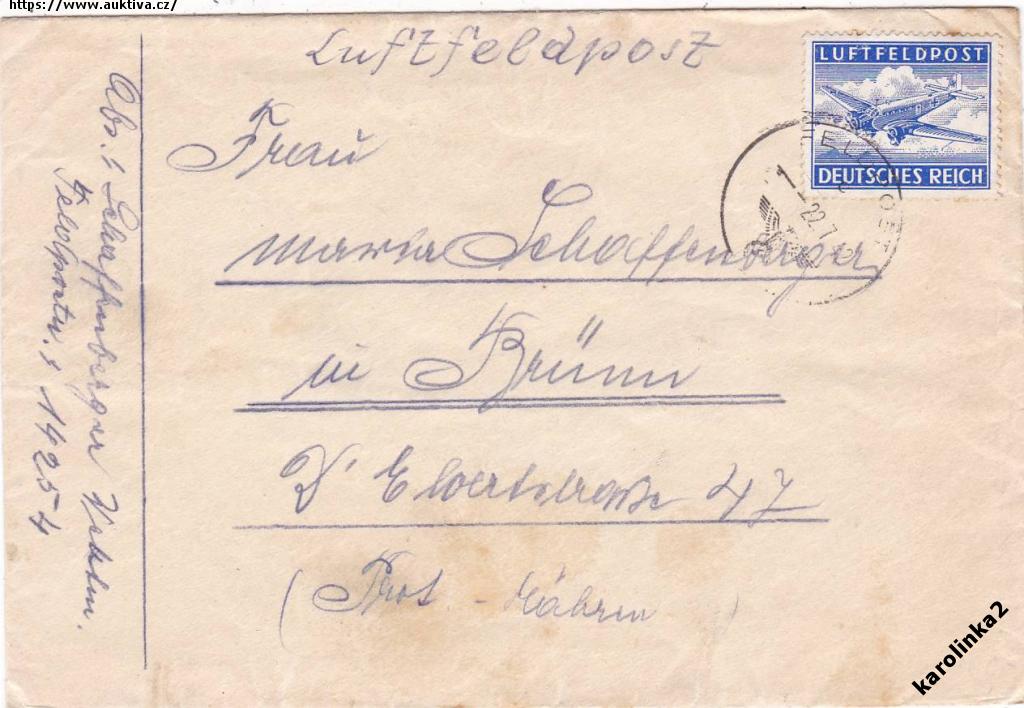 https://www.auktiva.cz/
Luftfeldpost
LUFTFELDPOST
DEUTSCHES REICH
FELDPOST
22.7
Frau
Maria Schaffenberger
in Brünn
47
(Prot. - Mähren
Abs.: Schaffenberger
Feldpostn.: 14254
karolinka2